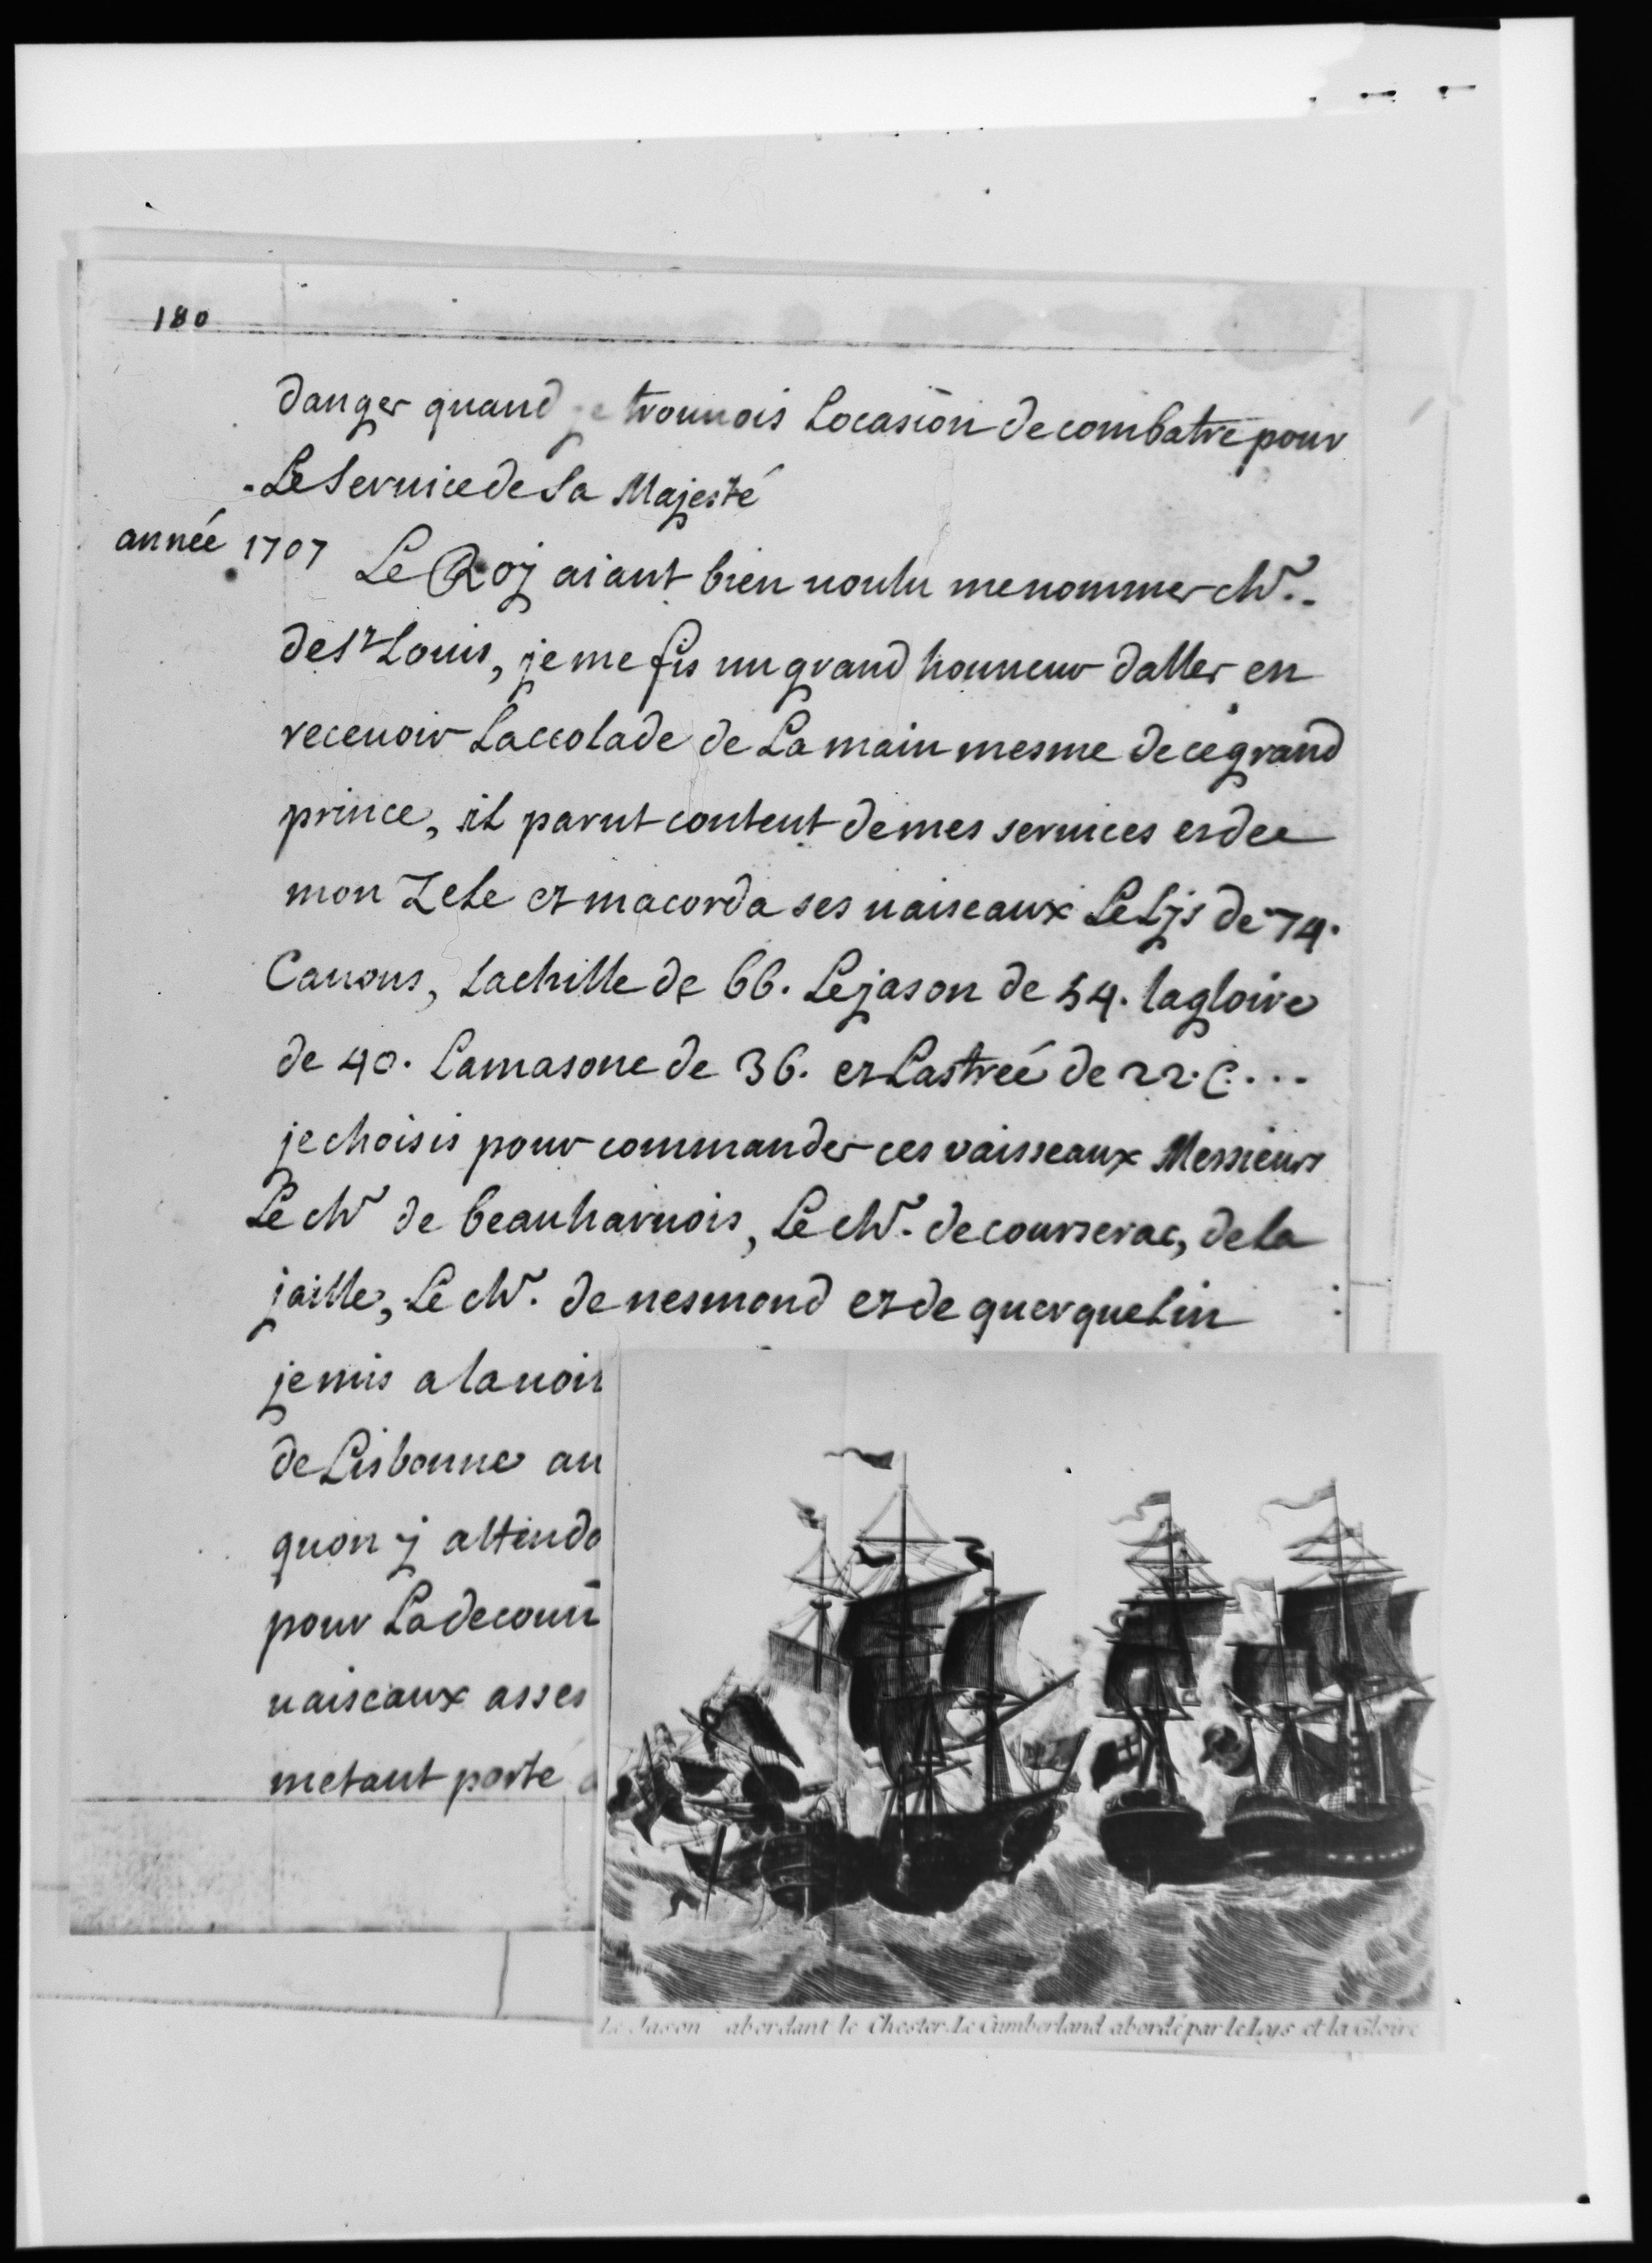 180
danger quand je trouuois Locasion de combatre pour
Le Seruice de Sa Majesté
année 1707 Le Roj aiant bien uoulu me nommer chr.
de St Louis, je me fis un grand honneur daller en
receuoir Laccolade de La main mesme de ce grand
prince, il parut content de mes seruices et de
mon Zele et macorda ses uaiseaux Le Ljs de 74.
Canons, Lachille de 66. Le jason de 54. la gloire
de 40. Lamasone de 36. et Lastreé de 22. C...
je choisis pour commander ces vaisseaux Messieurs
Le chr de beauharnois, Le chr. de courserac, de la
jaille, Le chr. de nesmond et de querguelin
je mis a la uoir
de Lisbonne au
quon j attendo
pour La decouu
uaiseaux asses
metant porte
Le Jason abordant le Chester. Le Cumberland abordé par le Lys et la Gloire